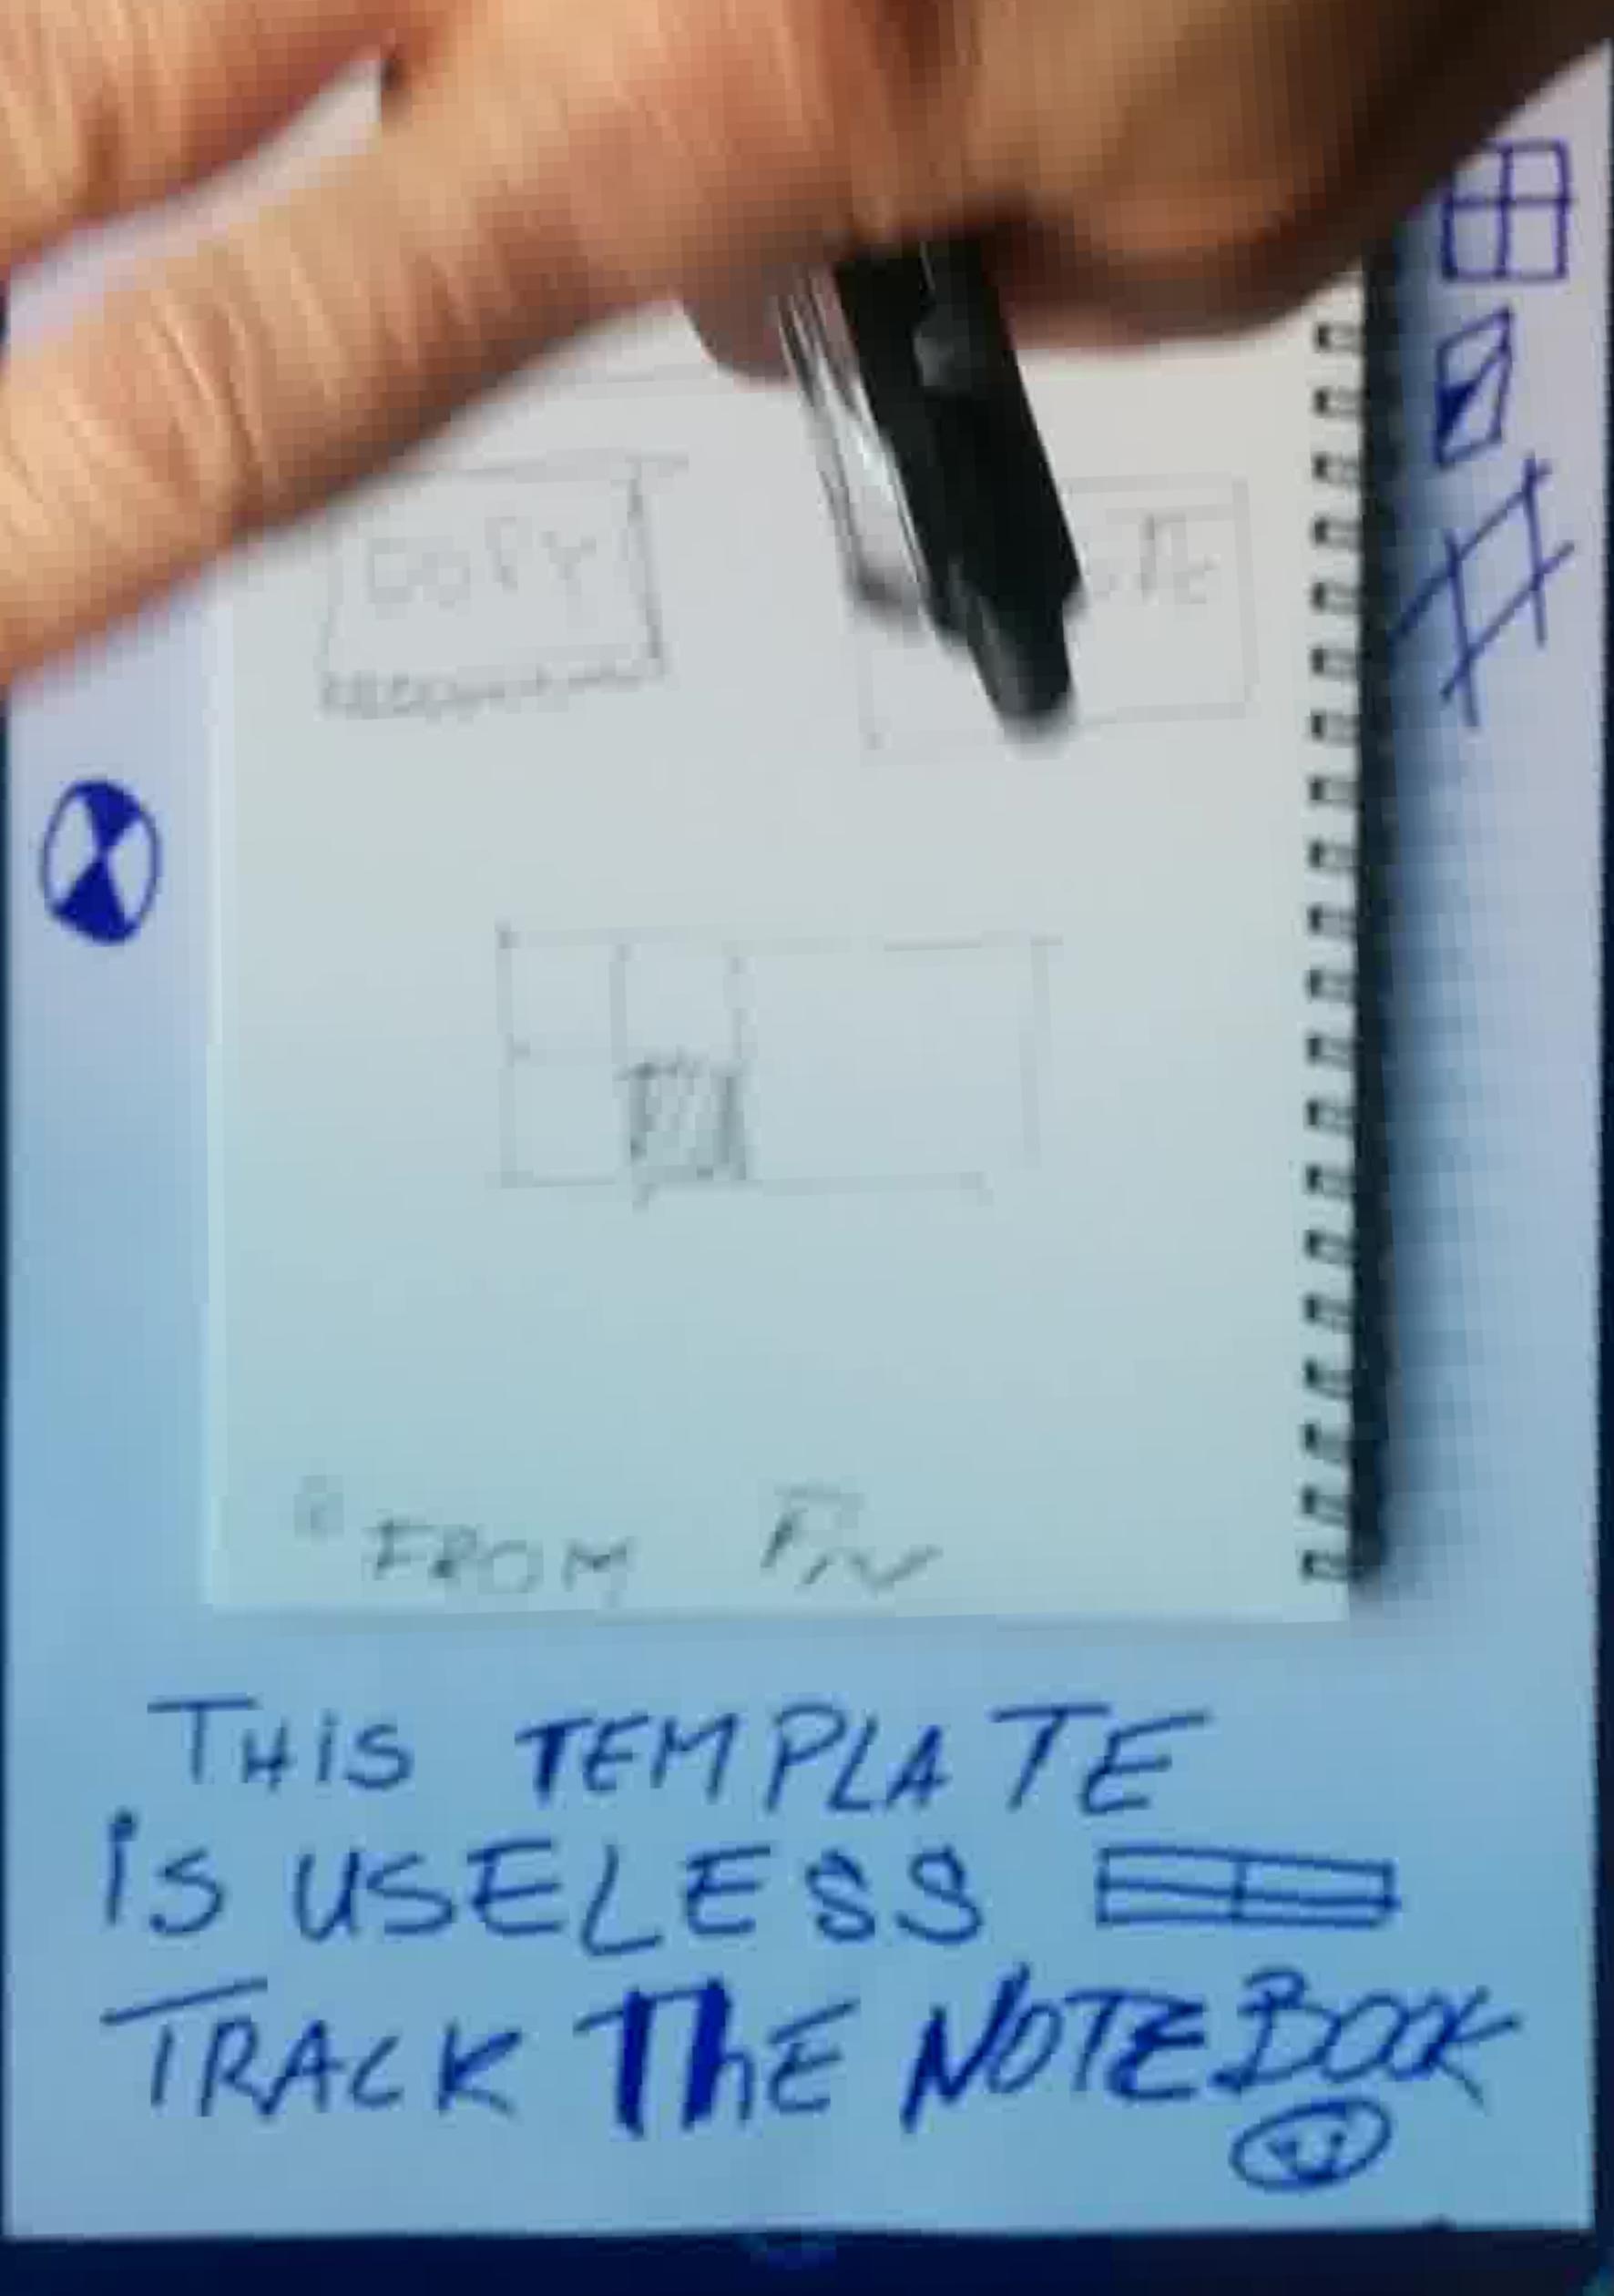 COPY
FROM
THIS TEMPLATE
is USELESS
TRACK ThE NOTEBOOK